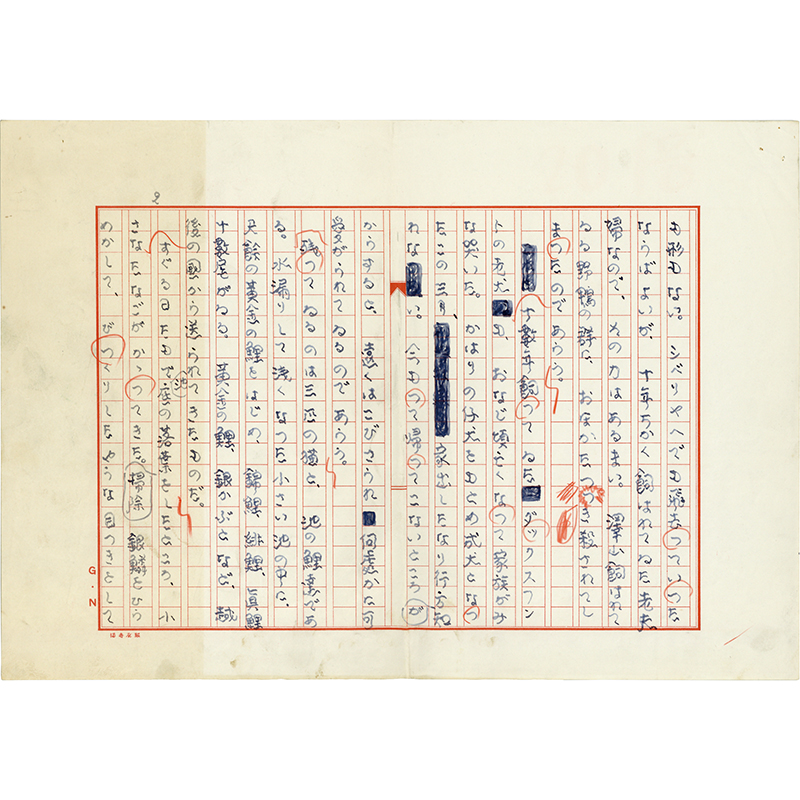 も形もない。シベリヤへでも飛去つていつた
ならばよいが、十年ちかく飼はれてゐた老夫
婦なので、その力はあるまい。澤山飼はれて
ゐる野鴨の群に、おほかたつつき殺されてし
まつたのであらう。
十數年飼つてゐたダックスフン
トの老犬も、おなじ頃亡くなつて家族がみ
な哭いた。かはりの仔犬をもとめ成犬となつ
たこの三月、家出したなり行方知
れない。今もつて帰つてこないところが
からすると、遠くはこびさられ何處かに可
愛がられてゐるのであらう。
残つてゐるのは三匹の猫と、池の鯉達であ
る。水漏りして浅くなつた小さい池の中に、
尺餘の黃金の鯉をはじめ、錦鯉、緋鯉、眞鯉
十數尾がゐる。黃金の鯉、銀かぶとなど、越
後の国から送られてきたものだ。
すぐる日たもで池底の落葉をしたところ、小
さなたなごがかゝつてきた。掃除銀鱗をひら
めかして、びつくりしたやうな目つきをして
2
G.N